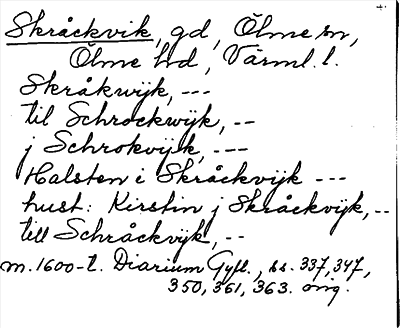 Skråckvik, gd, Ölme sn,
Ölme hd, Värml. l.
Skråkwijk, ---
til Schrockwijk, --
j Schrokvijk, ---
Halsten i Skråckvijk ---
hust: Kirstin j Skråckvijk, --
till Schråckvijk, --
m. 1600-t. Diarium Gyll., ss. 337, 347,
350, 361, 363. orig.